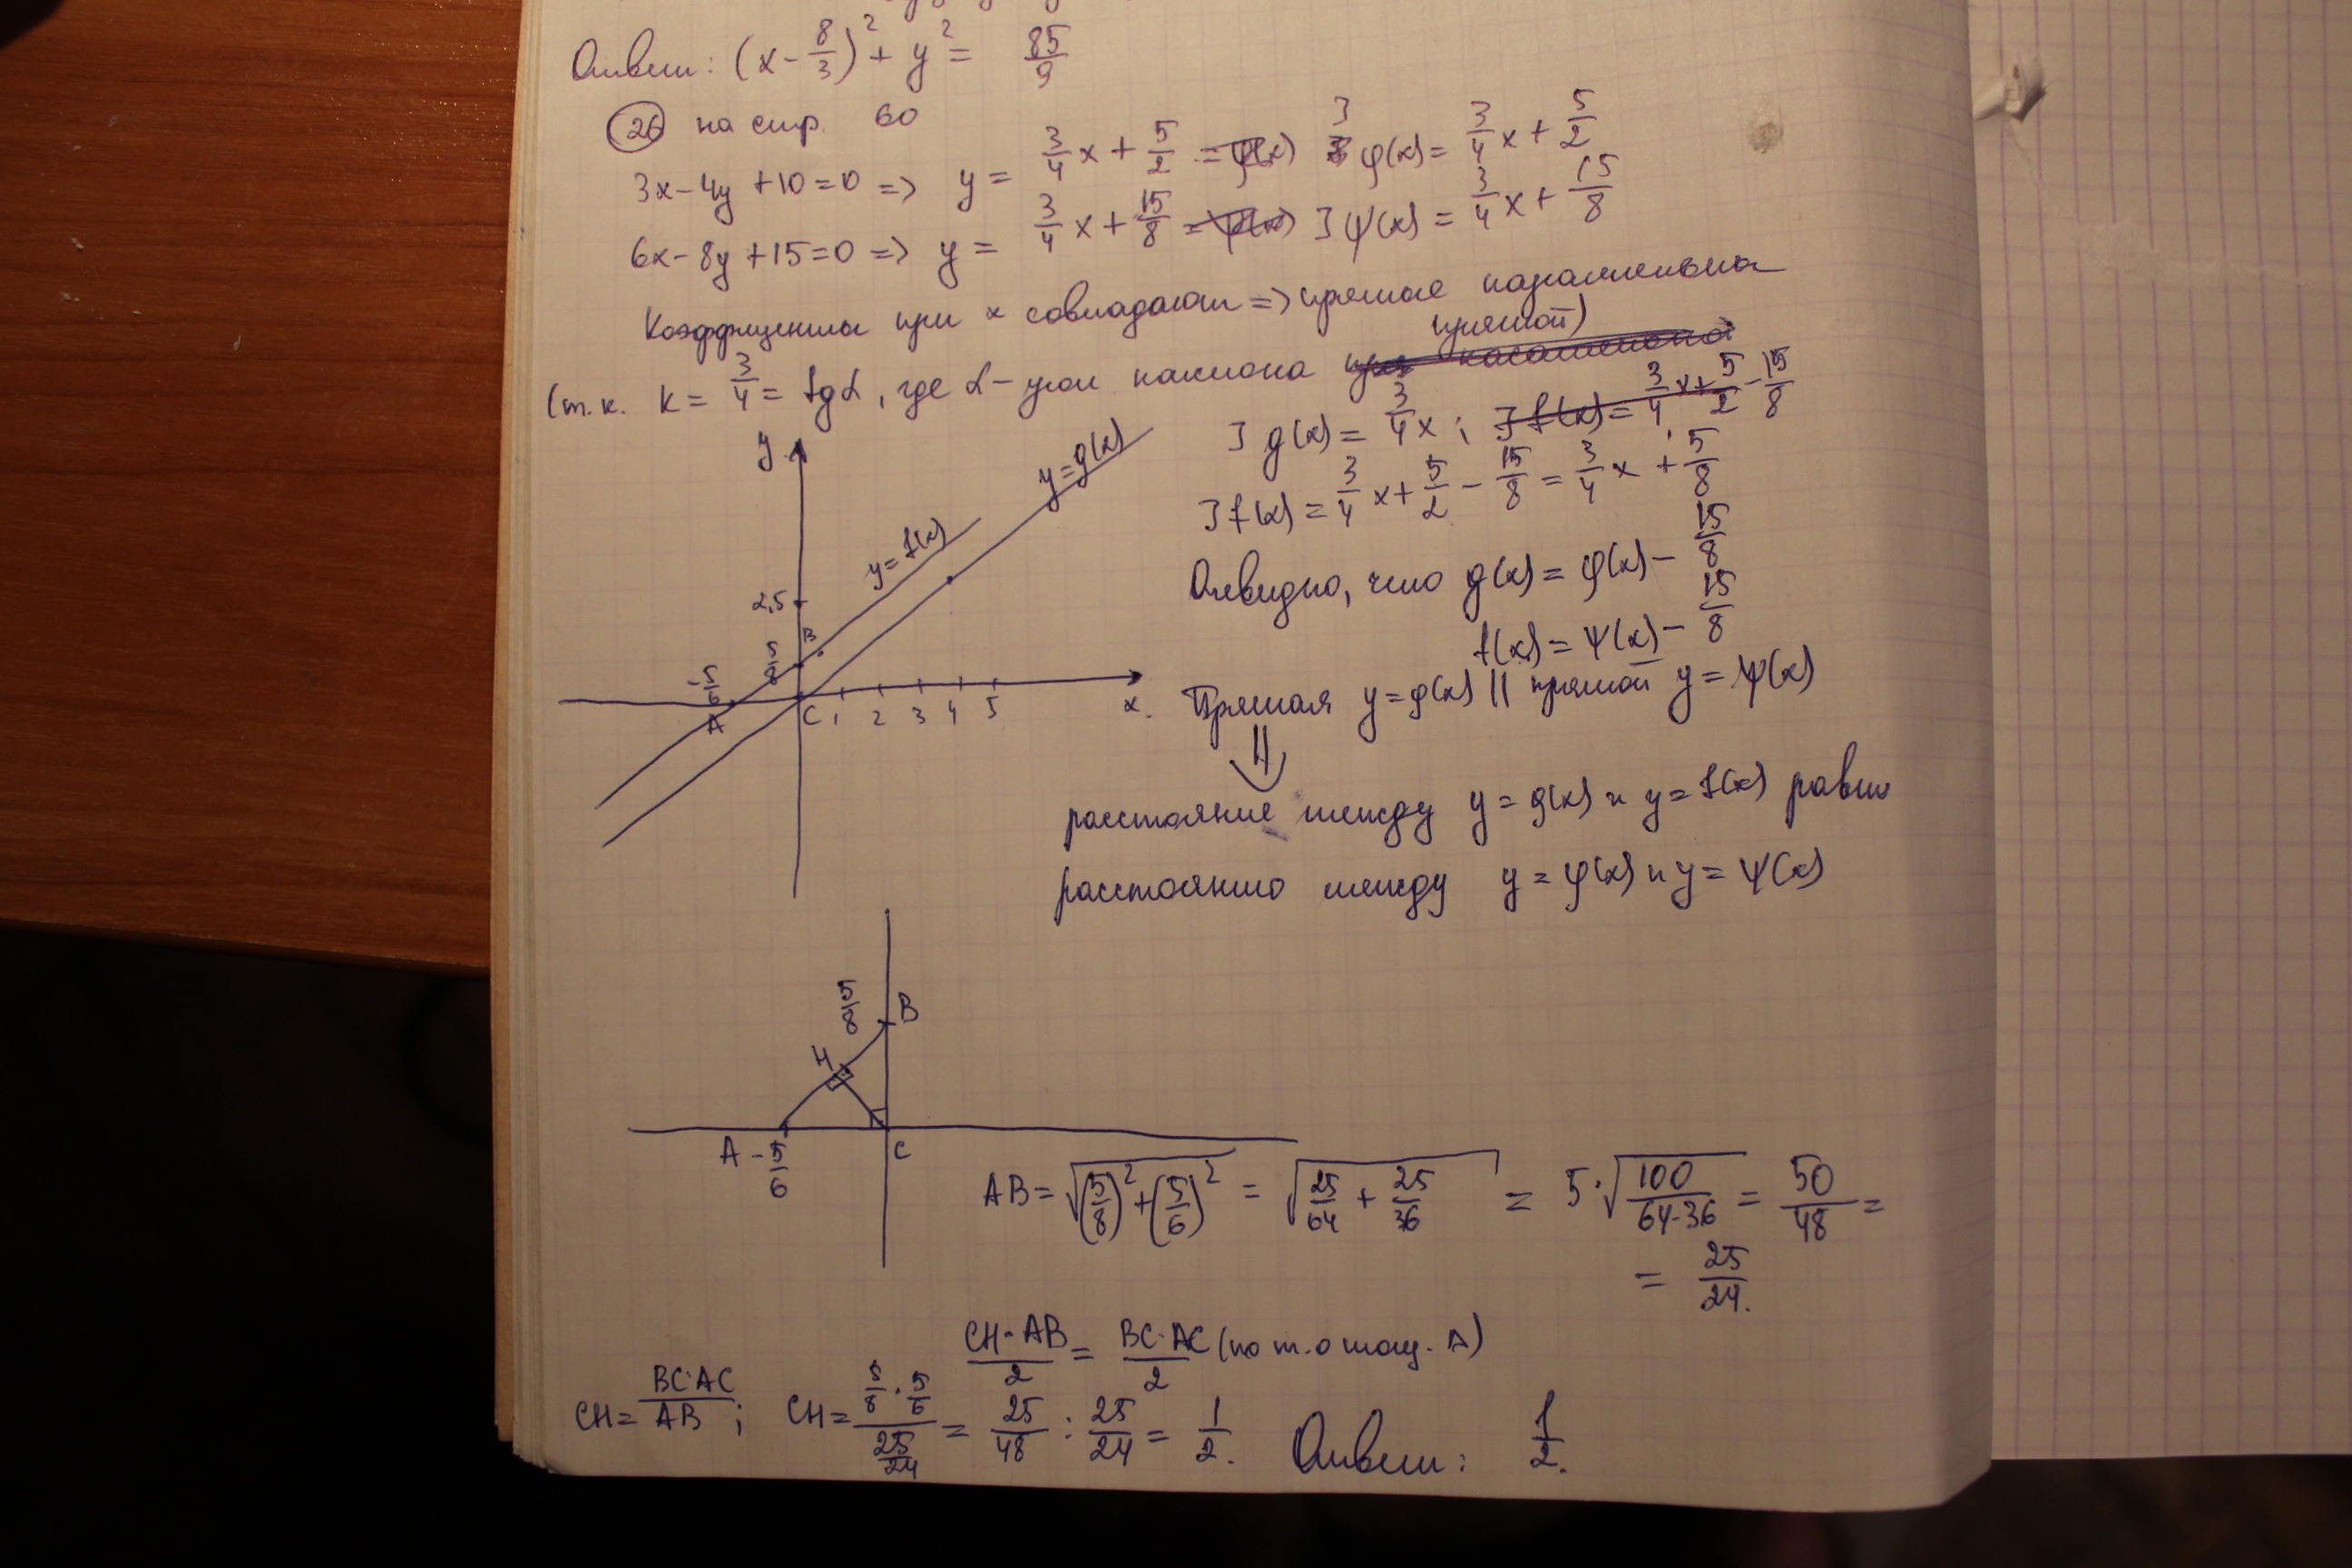 Ответ: (x - 8/3)² + y² = 85/9
26 на стр. 60
3x - 4y + 10 = 0 => y = 3/4 x + 5/2 ∃ φ(x) = 3/4 x + 5/2
6x - 8y + 15 = 0 => y = 3/4 x + 15/8 ∃ ψ(x) = 3/4 x + 15/8
Коэффициенты при x совпадают => прямые параллельны
(т.к. k = 3/4 = tg α, где α - угол наклона прямой)
∃ g(x) = 3/4 x;
∃ f(x) = 3/4 x + 5/2 - 15/8 = 3/4 x + 5/8
Очевидно, что g(x) = φ(x) - 15/8
f(x) = ψ(x) - 15/8
Прямая y = φ(x) || прямой y = ψ(x)
⇓
расстояние между y = g(x) и y = f(x) равно
расстоянию между y = φ(x) и y = ψ(x)
y
y = g(x)
y = f(x)
2,5
B
5/8
-5/6
A C 1 2 3 4 5 x
5/8 B
H
A -5/6 C
AB = √((5/8)² + (5/6)²) = √(25/64 + 25/36) = 5·√(100/(64·36)) = 50/48 =
= 25/24.
CH·AB/2 = BC·AC/2 (по т. о площ. Δ)
CH = BC·AC/AB; CH = (5/8 · 5/6)/(25/24) = 25/48 : 25/24 = 1/2. Ответ: 1/2.